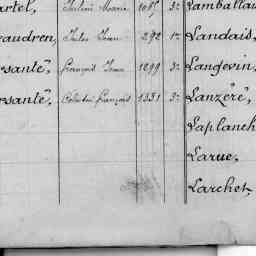 artel, Julien Marie 1087 3e Lamballa
audren, Jules Jean 292 1e Landais,
rsanté, François Jean 1299 3e Langevin,
rsanté, Célestin François 1331 3e Lanzéré,
Laplanch
Larue,
Larchet,